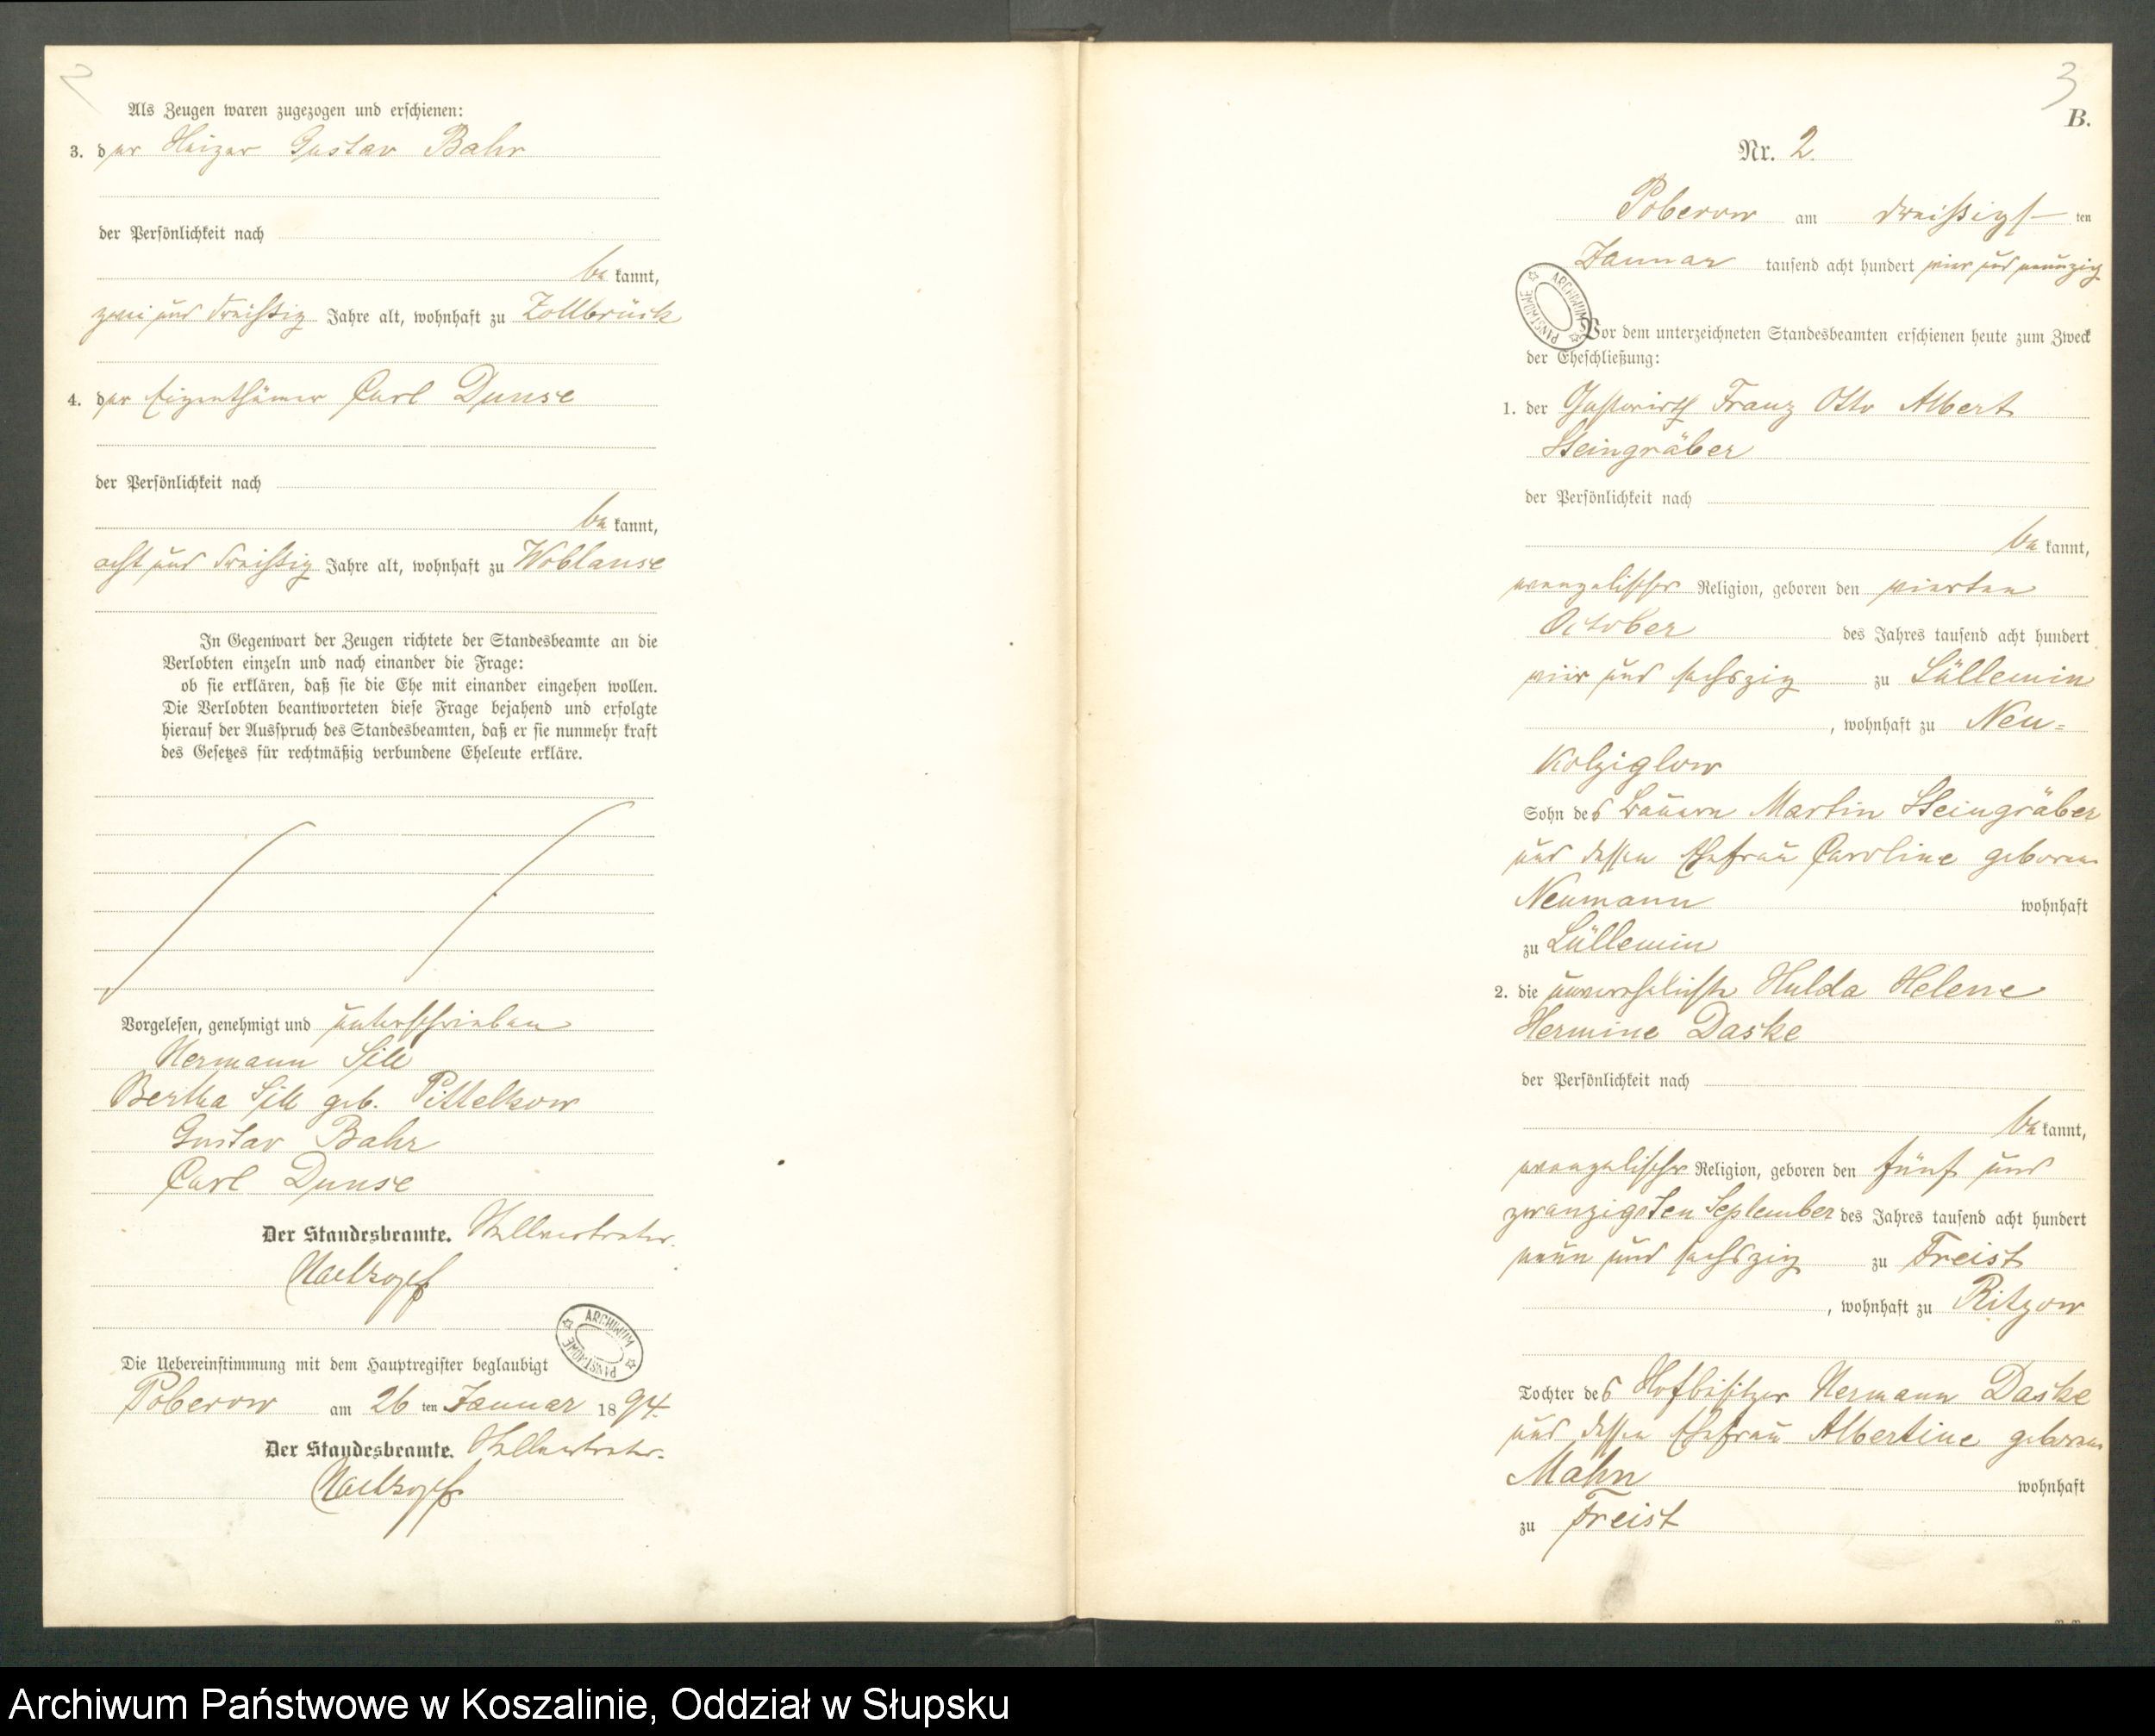 2
Als Zeugen waren zugezogen und erschienen:
3. der Heizer Gustav Bahr
der Persönlichkeit nach
be kannt,
zwei und dreißig Jahre alt, wohnhaft zu Zollbrück
4. der Eigenthümer Carl Dunse
der Persönlichkeit nach
be kannt,
acht und dreißig Jahre alt, wohnhaft zu Woblanse
In Gegenwart der Zeugen richtete der Standesbeamte an die
Verlobten einzeln und nach einander die Frage:
ob sie erklären, daß sie die Ehe mit einander eingehen wollen.
Die Verlobten beantworteten diese Frage bejahend und erfolgte
hierauf der Ausspruch des Standesbeamten, daß er sie nunmehr kraft
des Gesetzes für rechtmäßig verbundene Eheleute erkläre.
Vorgelesen, genehmigt und unterschrieben
Hermann Sill
Bertha Sill geb. Pittelkow
Gustav Bahr
Carl Dunse
Der Standesbeamte. Stellvertreter.
ARCHIWUM PAŃSTWOWE
Die Uebereinstimmung mit dem Hauptregister beglaubigt
Poberow am 26 ten Januar 18 94.
Der Standesbeamte. Stellvertreter.
3
B.
Nr. 2.
Poberow am dreißigst ten
Januar tausend acht hundert vier und neunzig
ARCHIWUM PAŃSTWOWE
Vor dem unterzeichneten Standesbeamten erschienen heute zum Zweck
der Eheschließung:
1. der Gastwirth Franz Otto Albert
Steingräber
der Persönlichkeit nach
be kannt,
evangelischer Religion, geboren den vierten
October des Jahres tausend acht hundert
vier und sechszig zu Lüllemin
, wohnhaft zu Neu=
Kolziglow
Sohn des Bauern Martin Steingräber
und dessen Ehefrau Caroline geborene
Neumann wohnhaft
zu Lüllemin
2. die unverehelichte Hulda Helene
Hermine Daske
der Persönlichkeit nach
be kannt,
evangelischer Religion, geboren den fünf und
zwanzigsten September des Jahres tausend acht hundert
neun und sechszig zu Freist
, wohnhaft zu Ritzow
Tochter des Hofbesitzer Hermann Daske
und dessen Ehefrau Albertine geborene
Mahn wohnhaft
zu Freist
Archiwum Państwowe w Koszalinie, Oddział w Słupsku